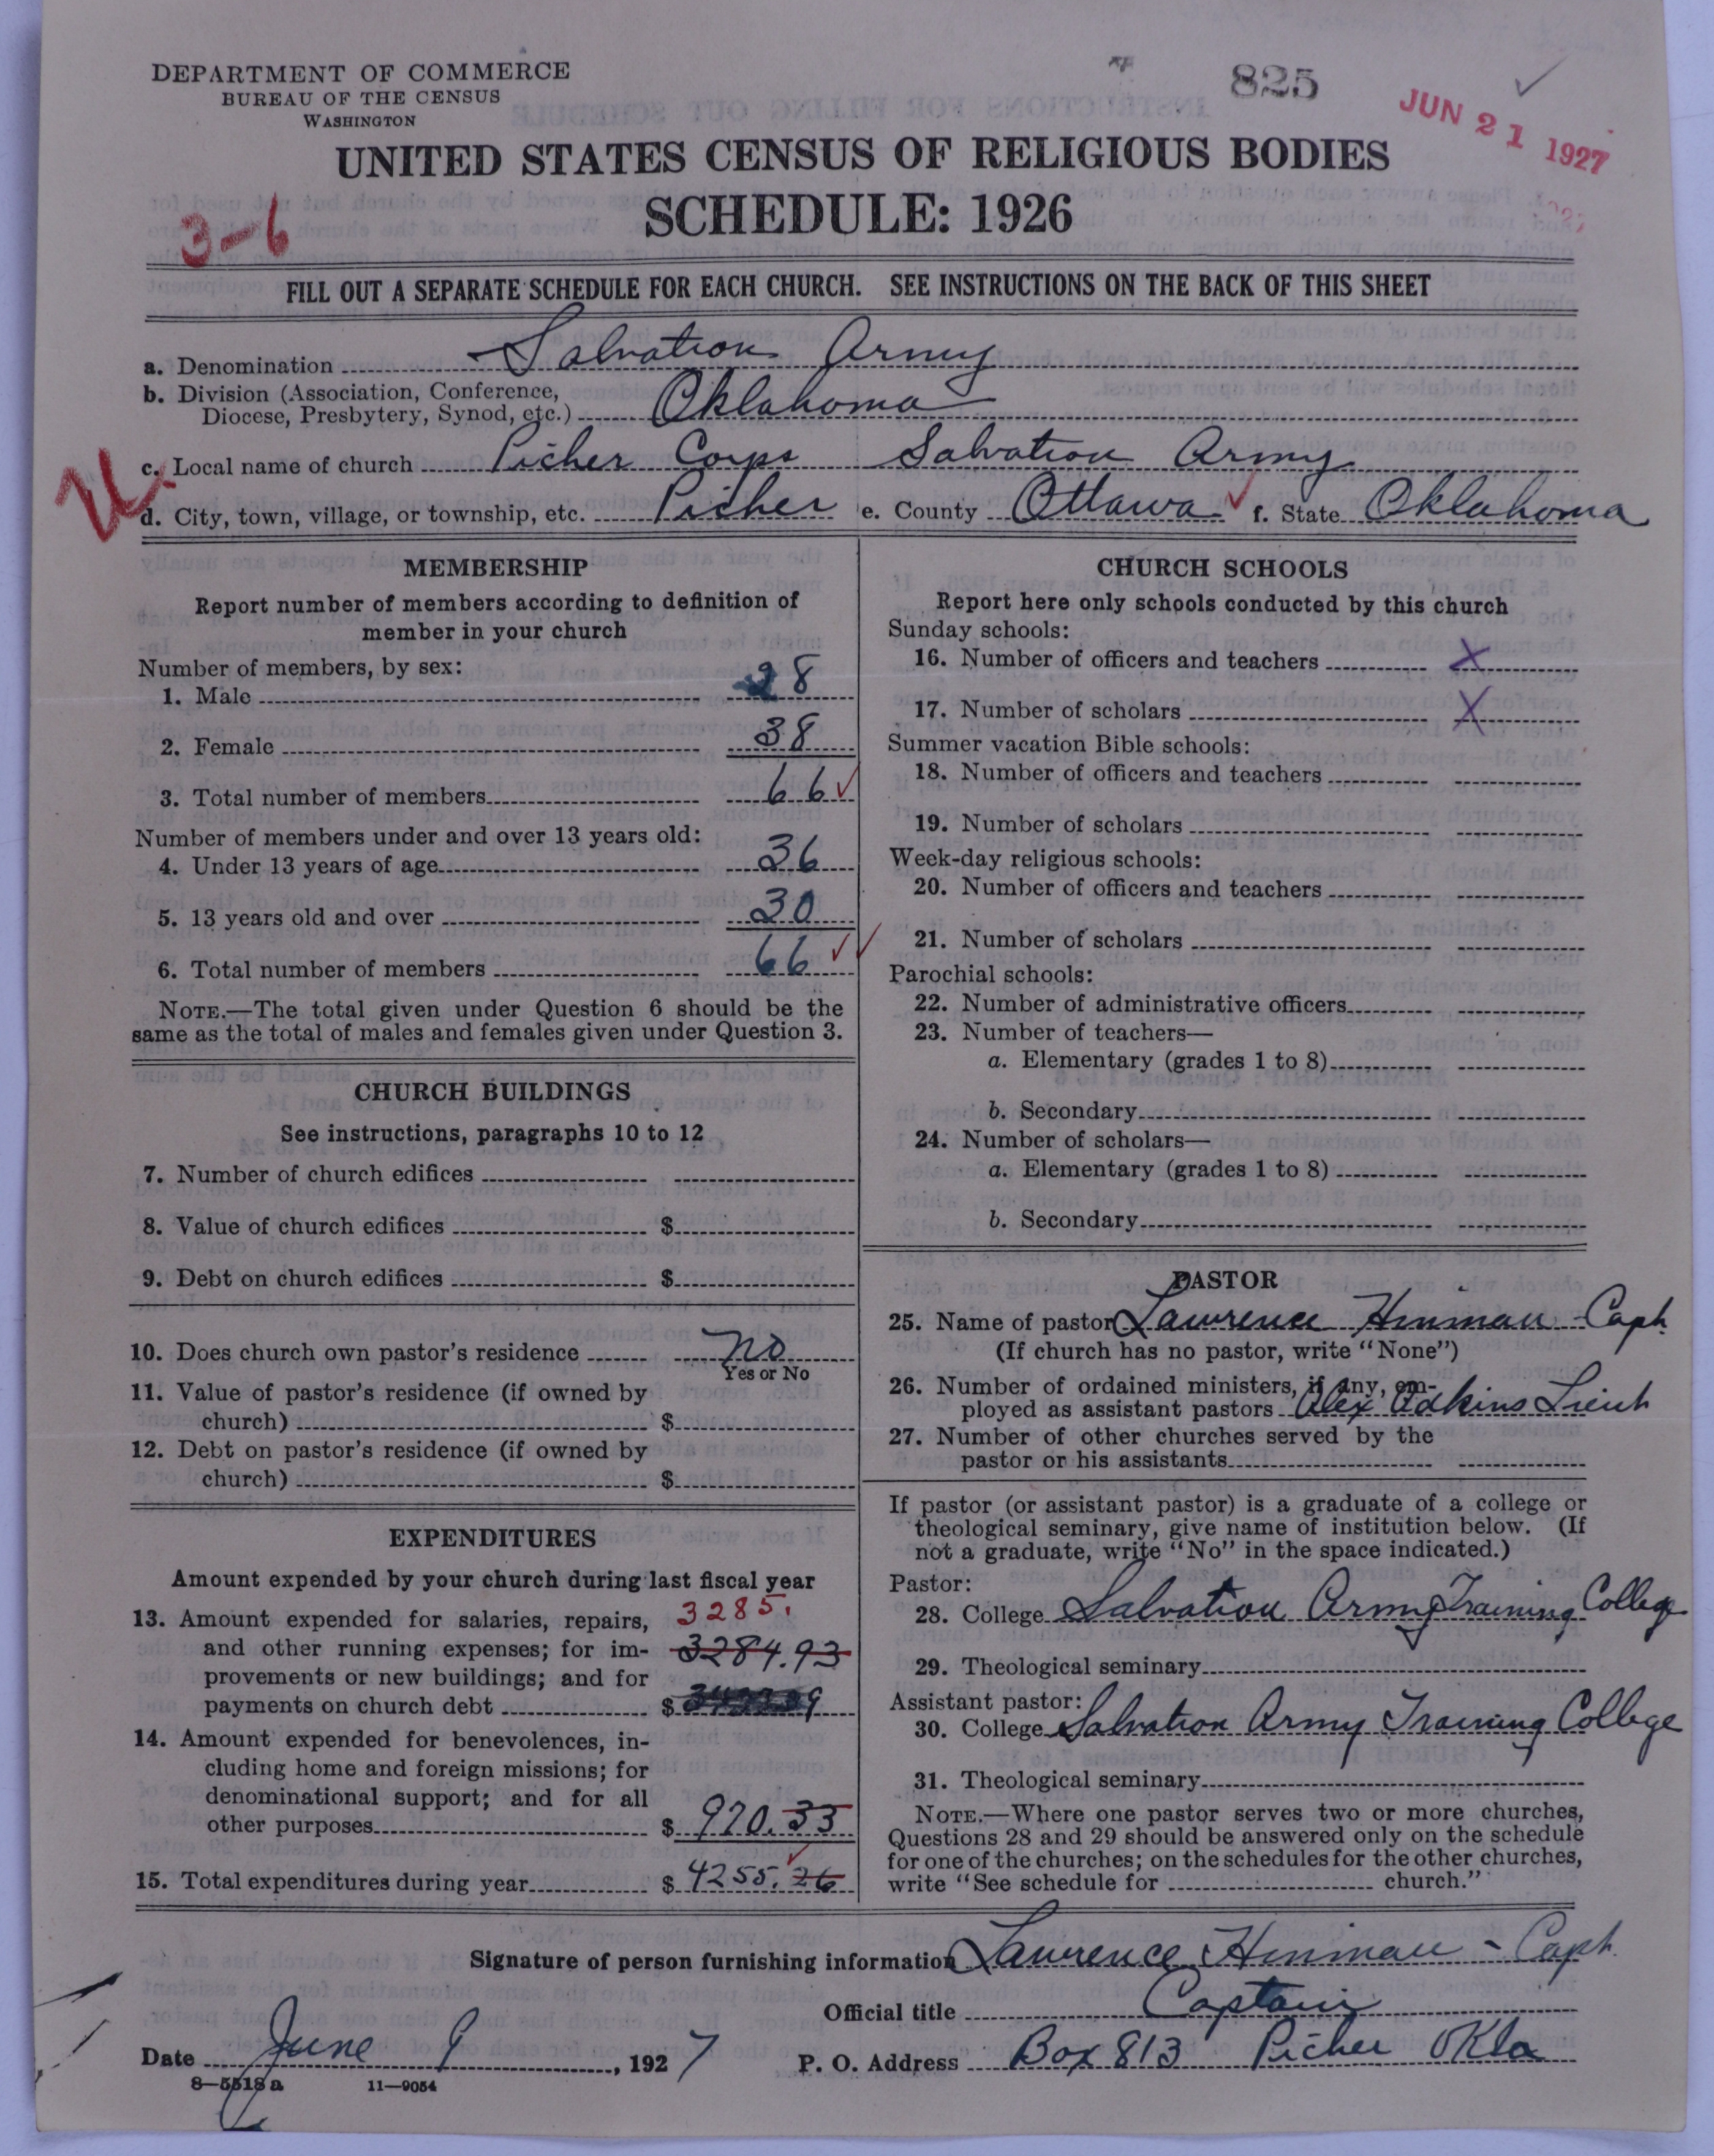 DEPARTMENT OF COMMERCE
BUREAU OF THE CENSUS
WASHINGTON
825
JUN 21 1927
UNITED STATES CENSUS OF RELIGIOUS BODIES
SCHEDULE: 1926
3-6
FILL OUT A SEPARATE SCHEDULE FOR EACH CHURCH. SEE INSTRUCTIONS ON THE BACK OF THIS SHEET
a. Denomination Salvation Army
b. Division (Association, Conference,
Diocese, Presbytery, Synod, etc.) Oklahoma
c. Local name of church Picher Corps Salvation Army
d. City, town, village, or township, etc. Picher e. County Ottawa f. State Oklahoma
MEMBERSHIP
Report number of members according to definition of
member in your church
Number of members, by sex:
1. Male 28
2. Female 38
3. Total number of members 66
Number of members under and over 13 years old:
4. Under 13 years of age 36
5. 13 years old and over 30
6. Total number of members 66
NOTE.—The total given under Question 6 should be the
same as the total of males and females given under Question 3.
CHURCH BUILDINGS
See instructions, paragraphs 10 to 12
7. Number of church edifices
8. Value of church edifices $
9. Debt on church edifices $
10. Does church own pastor's residence No
Yes or No
11. Value of pastor's residence (if owned by
church) $
12. Debt on pastor's residence (if owned by
church) $
EXPENDITURES
Amount expended by your church during last fiscal year
13. Amount expended for salaries, repairs, 3285.
and other running expenses; for im- 3284.93
provements or new buildings; and for
payments on church debt $
14. Amount expended for benevolences, in-
cluding home and foreign missions; for
denominational support; and for all
other purposes $ 970.33
15. Total expenditures during year $ 4255.26
CHURCH SCHOOLS
Report here only schools conducted by this church
Sunday schools:
16. Number of officers and teachers X
17. Number of scholars X
Summer vacation Bible schools:
18. Number of officers and teachers
19. Number of scholars
Week-day religious schools:
20. Number of officers and teachers
21. Number of scholars
Parochial schools:
22. Number of administrative officers
23. Number of teachers—
a. Elementary (grades 1 to 8)
b. Secondary
24. Number of scholars—
a. Elementary (grades 1 to 8)
b. Secondary
PASTOR
25. Name of pastor Lawrence Hinman - Capt.
(If church has no pastor, write "None")
26. Number of ordained ministers, if any, em-
ployed as assistant pastors Alex Adkins Lieut
27. Number of other churches served by the
pastor or his assistants
If pastor (or assistant pastor) is a graduate of a college or
theological seminary, give name of institution below. (If
not a graduate, write "No" in the space indicated.)
Pastor:
28. College Salvation Army Training College
29. Theological seminary
Assistant pastor:
30. College Salvation Army Training College
31. Theological seminary
NOTE.—Where one pastor serves two or more churches,
Questions 28 and 29 should be answered only on the schedule
for one of the churches; on the schedules for the other churches,
write "See schedule for church."
Signature of person furnishing information Lawrence Hinman - Capt.
Official title Captain
Date June 9, 1927 P. O. Address Box 813 Picher Okla
8-5518a 11-9054